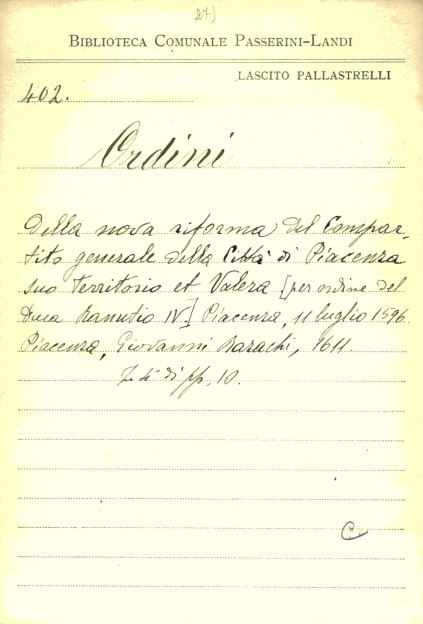 27)
BIBLIOTECA COMUNALE PASSERINI-LANDI
LASCITO PALLASTRELLI
402.
Ordini
Della nova riforma del Compar-
tito generale della Città di Piacenza
suo territorio et Valera [per ordine del
Duca Ranutio IV] Piacenza, 11 luglio 1596.
Piacenza, Giovanni Barachi, 1611.
di pp. 10.